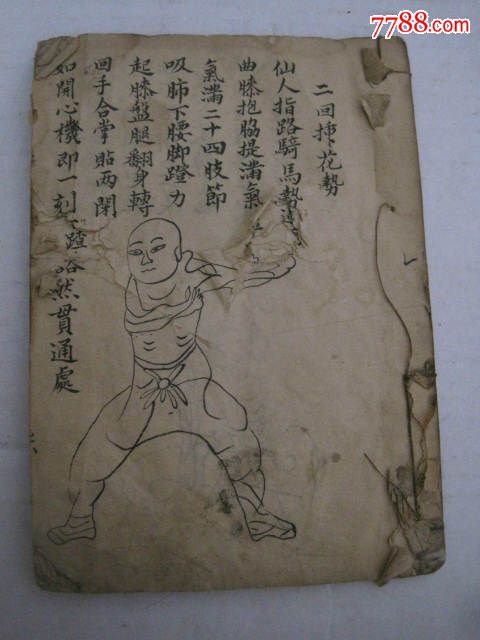 7788.com
二回揷花勢
仙人指路騎馬勢
曲膝抱脇提滿氣
氣滿二十四肢節
吸肺下腰脚蹬力
起膝盤腿翻身轉
回手合掌貼兩閉
如開心機即一刻蹅
然貫通處